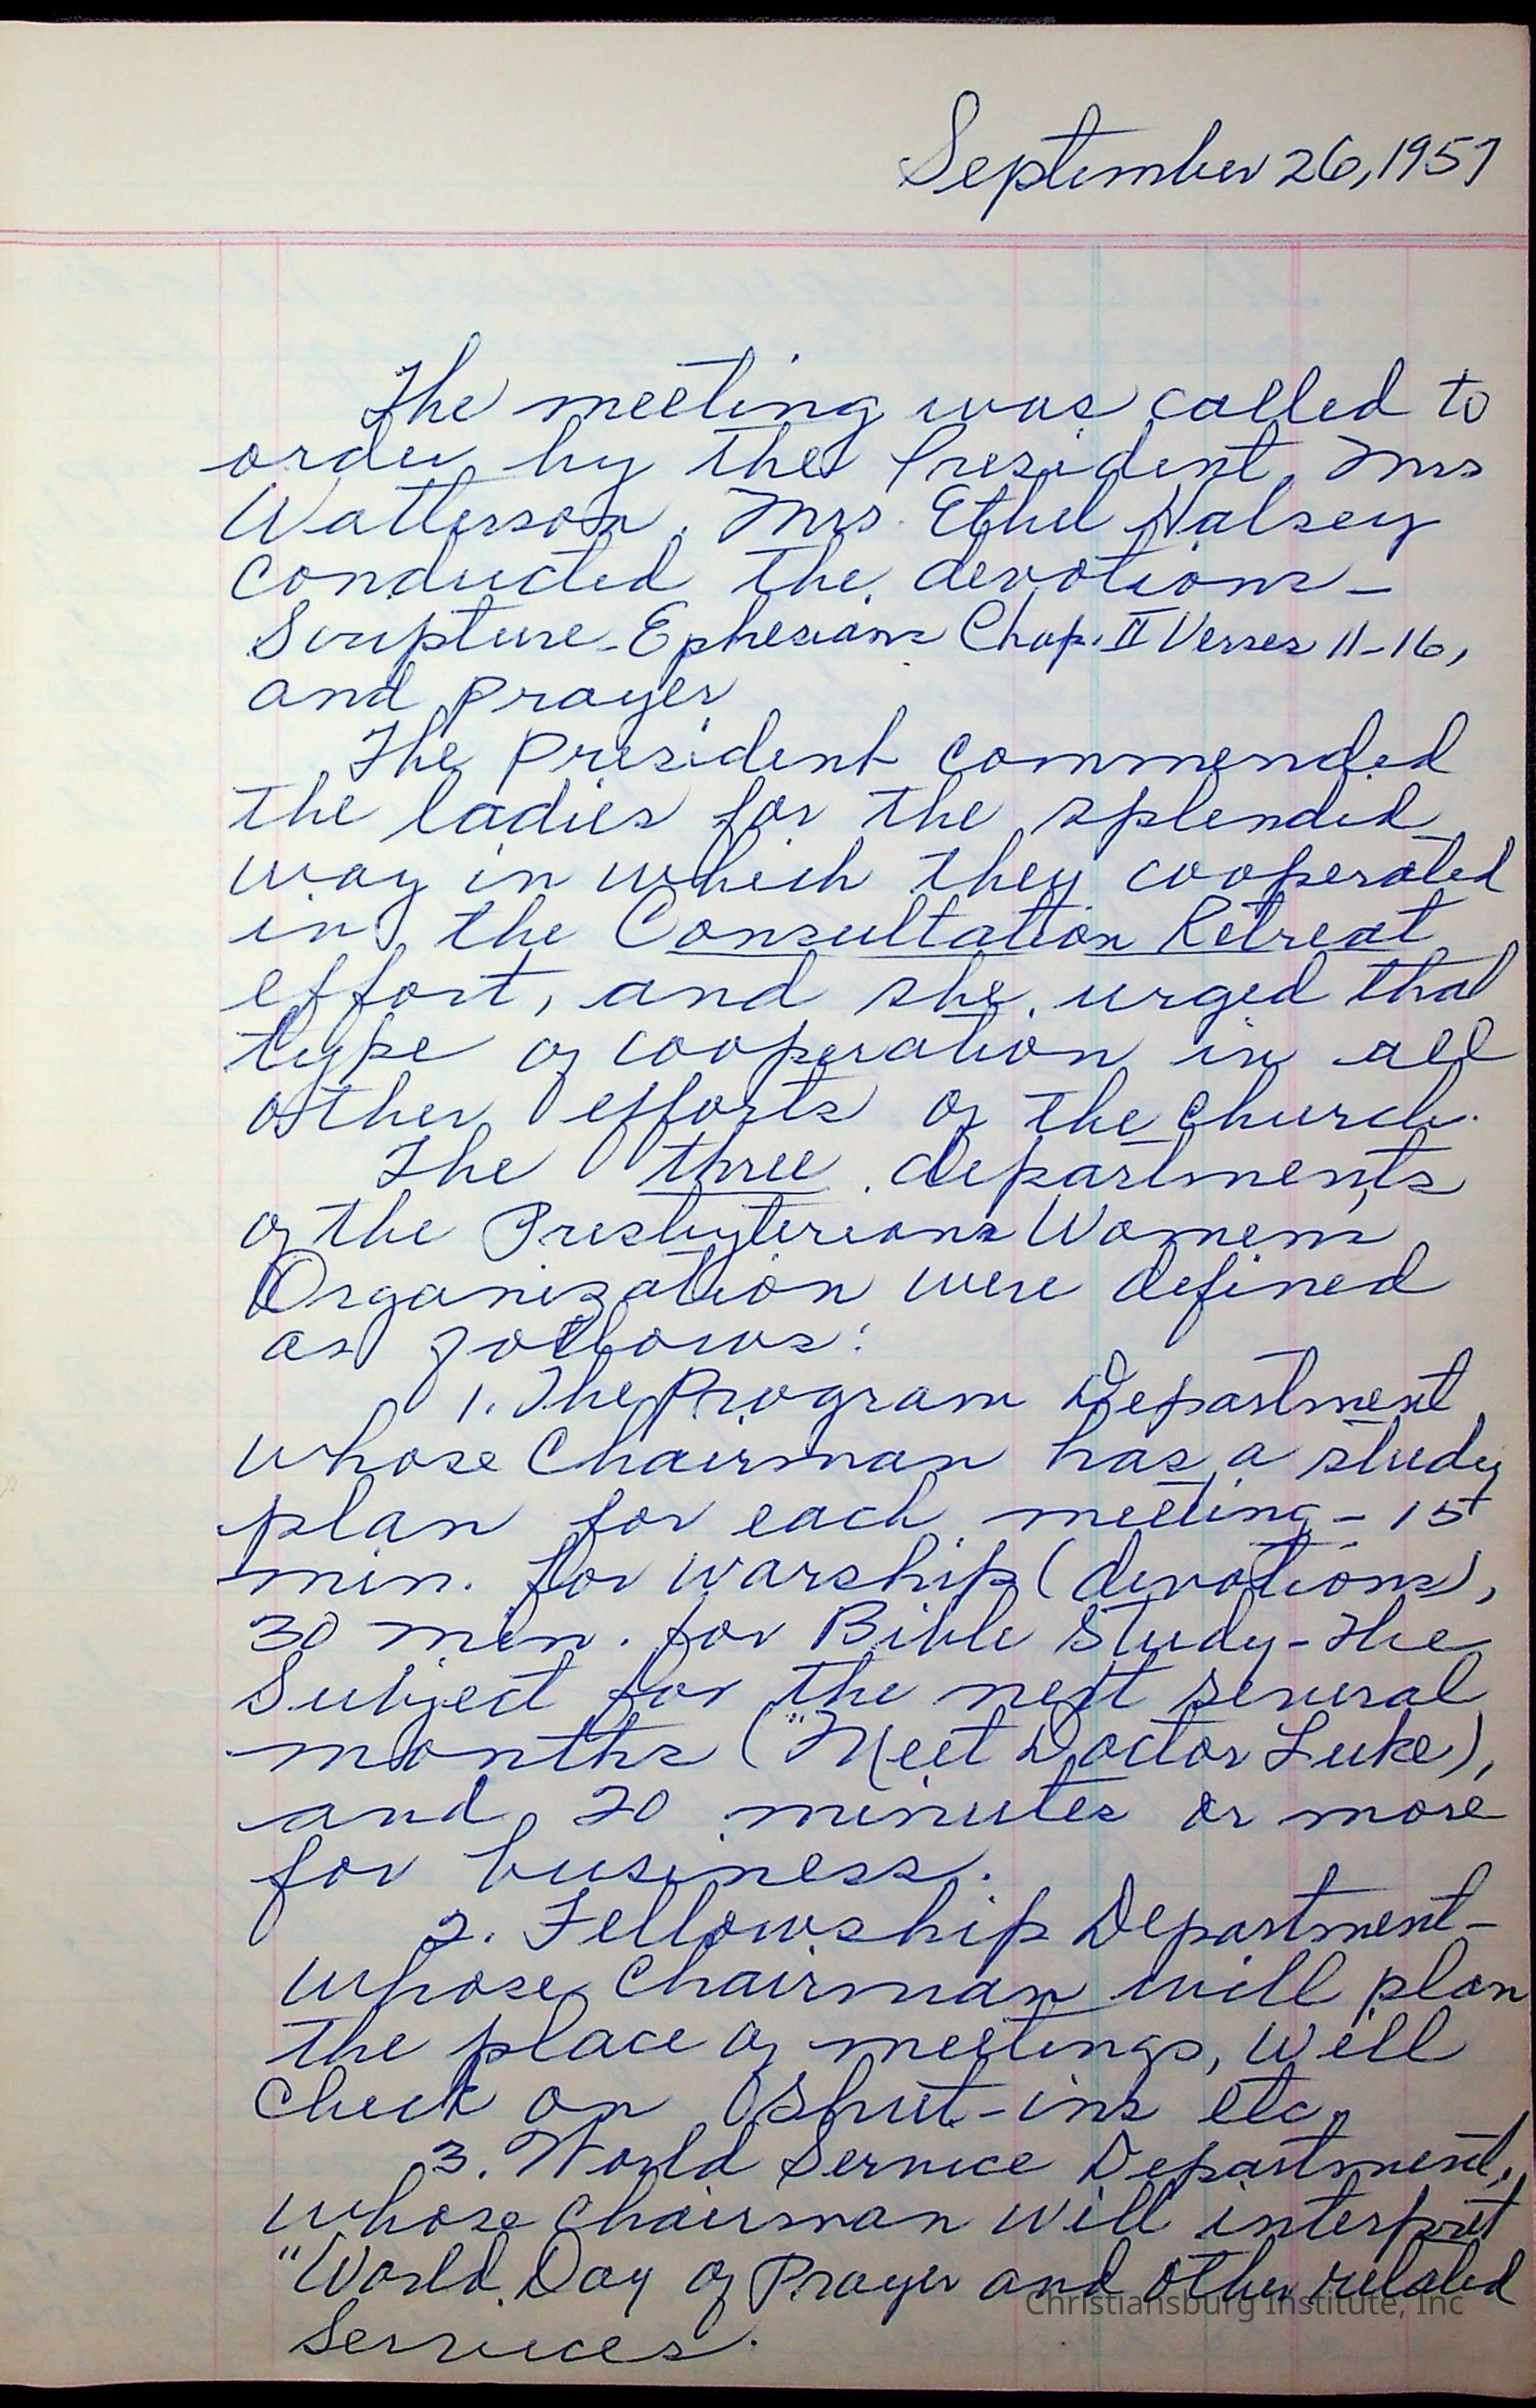 September 26, 1957
The meeting was called to
order by the President, Mrs
Watterson. Mrs. Ethel Halsey
conducted the devotions -
Scripture - Ephesians Chap. II Verses 11-16,
and prayer.
The President commended
the ladies for the splendid
way in which they cooperated
in the Consultation Retreat
effort, and she urged that
type of cooperation in all
other efforts of the church.
The three departments
of the Presbyterians Women's
Organization were defined
as follows:
1. The Program Department
whose Chairman has a study
plan for each meeting - 15
min. for warship (devotions),
30 min. for Bible Study - The
Subject for the next several
months ("Meet Doctor Luke),
and 20 minutes or more
for business.
2. Fellowship Department -
whose Chairman will plan
the place of meetings, will
check on shut-ins etc.
3. World Service Department,
whose Chairman will interpret
"World Day of Prayer and other related
Services.
Christiansburg Institute, Inc